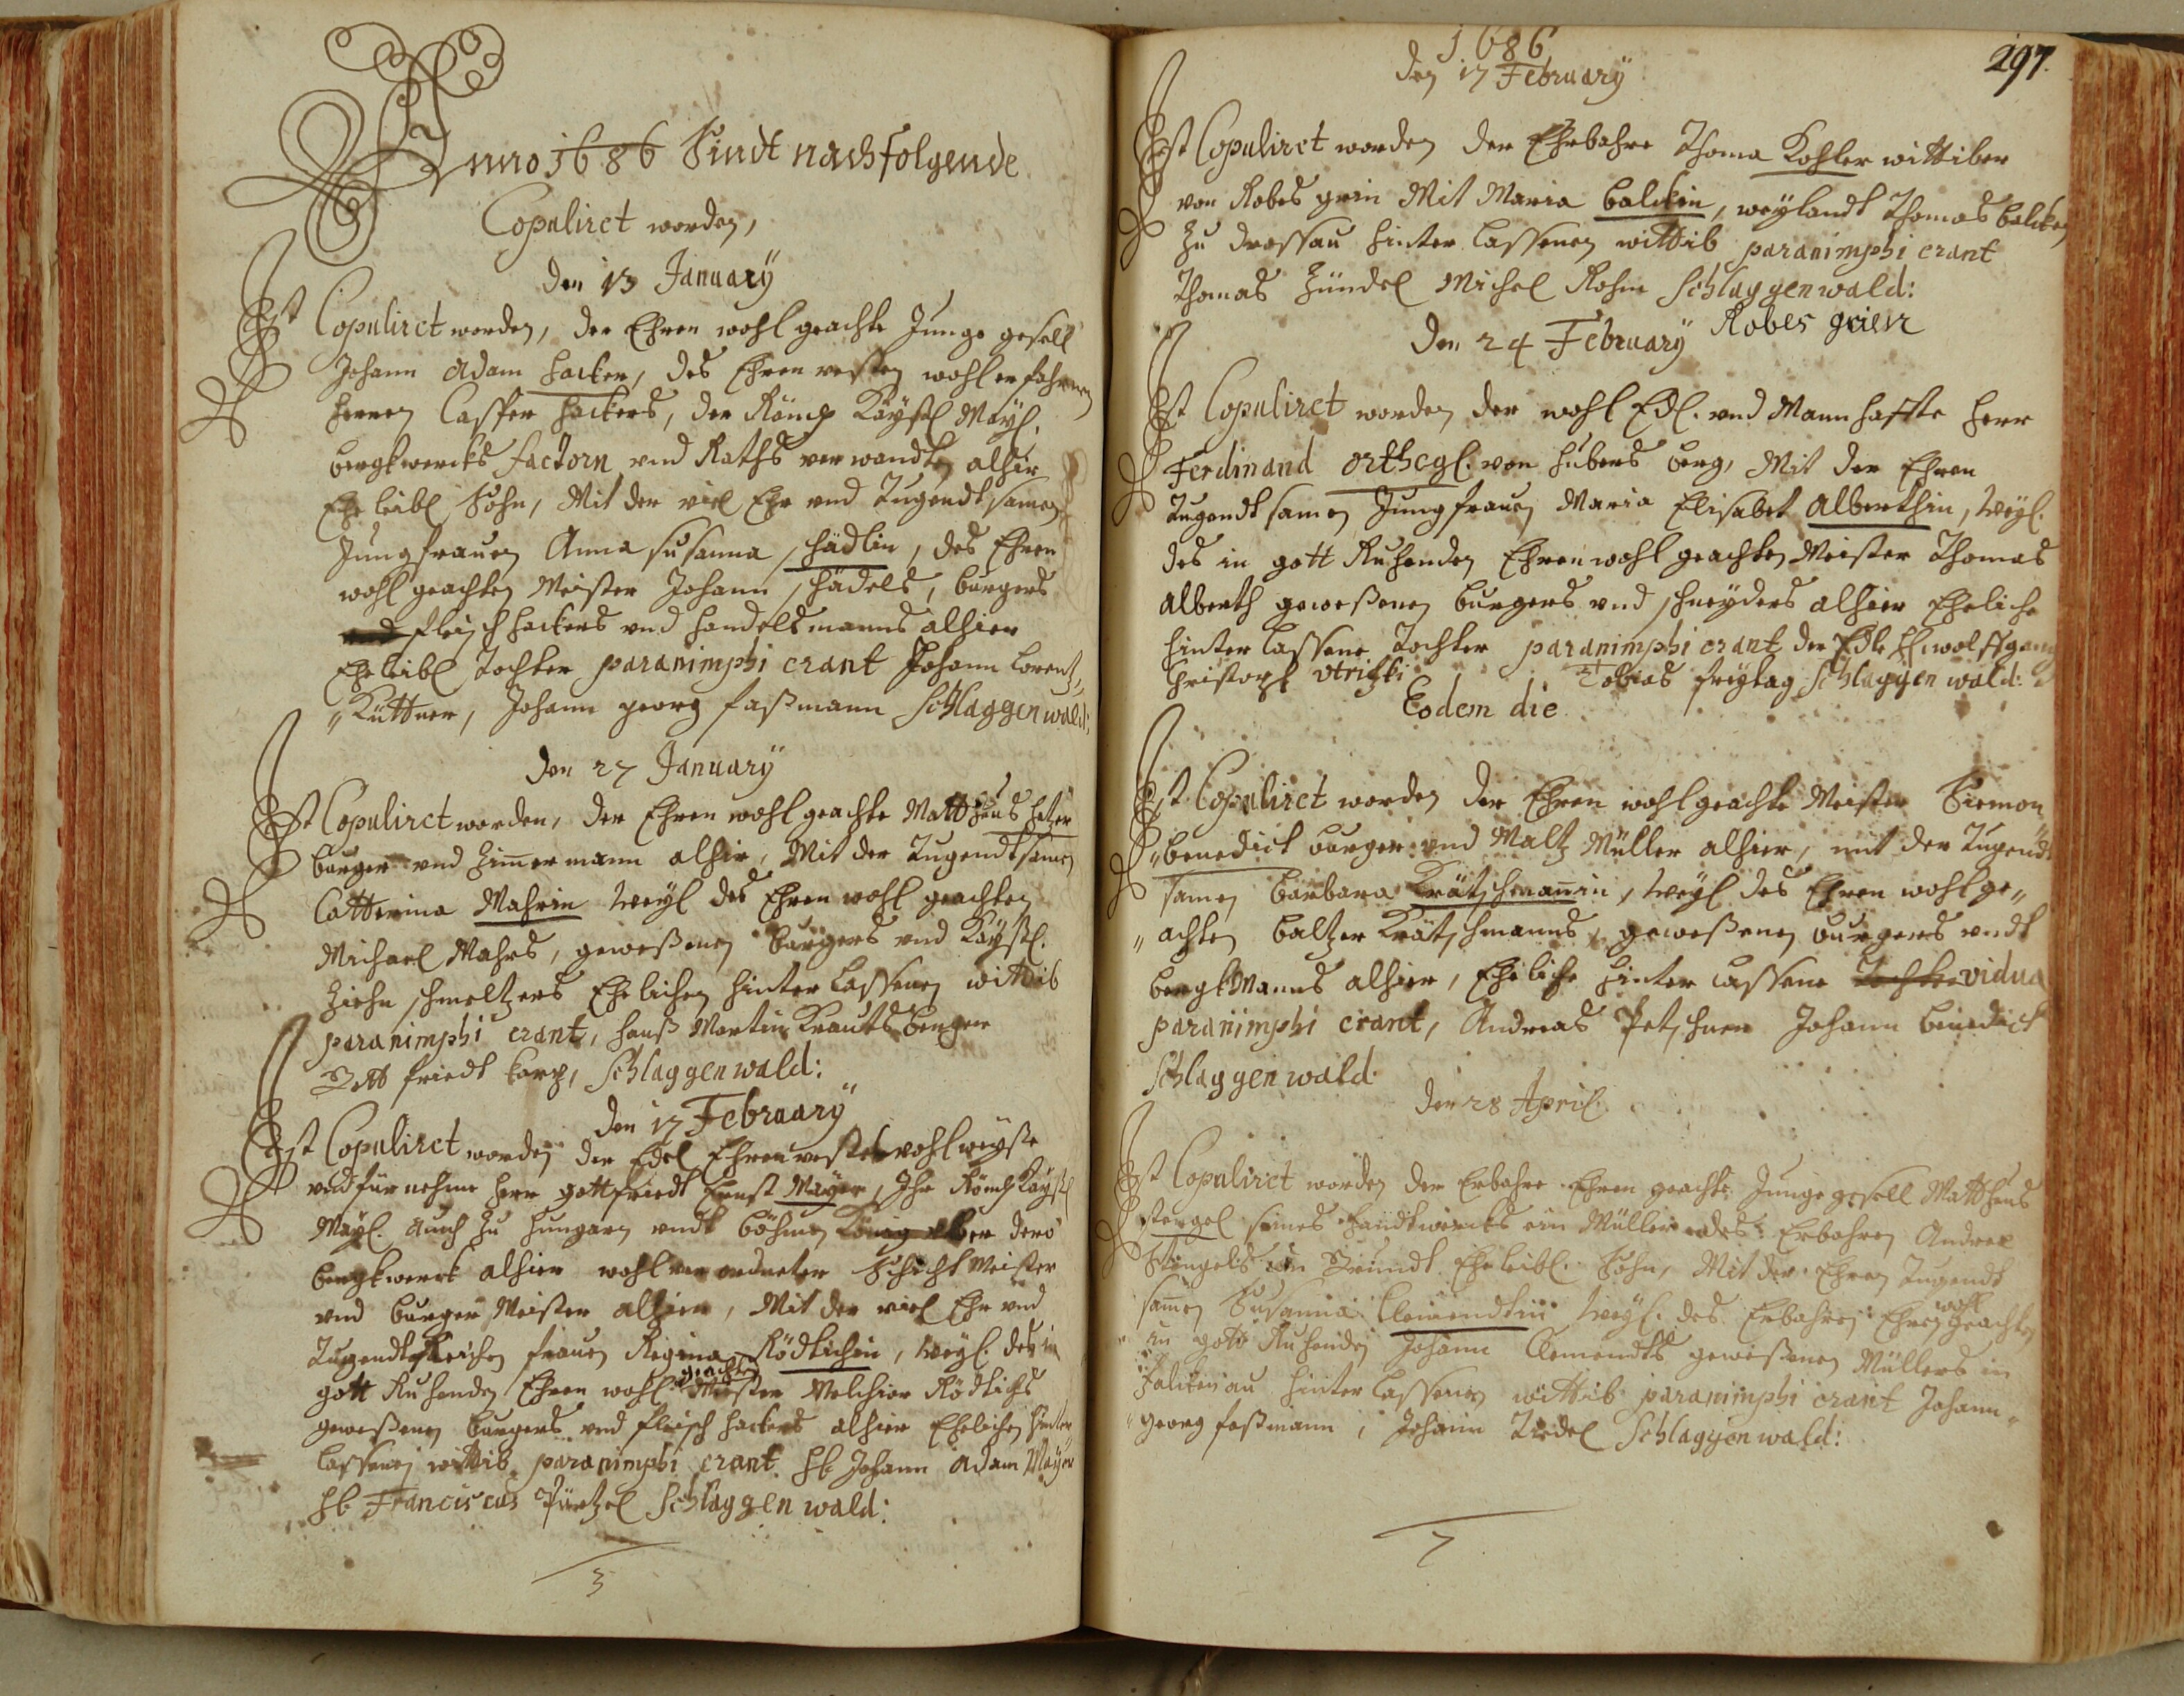 Anno 1686 Sindt nachfolgende
Copuliret worden,
den 13 January
Ist Copuliret worden, der Ehren wohl geachte Junge gesell
Johann Adam Hacker, des Ehren vesten wohl erfahrnen
herren Casper Hackers, der Römisch Kayßl Mayl.
bergkwercks factorn und Raths verwandten alhir
Ehe leibl Sohn, Mit der viel Ehr und Tugendtsamen
Jungfrauen Anna Susanna Schädlin, des Ehren
wohl geachten Meister Johann Schädels, burgers
und fleischhackers und handelsmanns alhier
Eheleibl Tochter paranimphi erant Johann Lorentz
Küttner, Johann georg faßmann Schlaggenwald:
den 27 January
Ist Copuliret worden, der Ehren wohl geachte Mattheus
burger und Zimermann alhir, Mit der Tugendtsamen
Catterina Mahrin weyl des Ehren wohl geachten
Michael Mahrs, geweßenen burgers und Kayßl.
Ziehn schmeltzers Ehelichen hinter lassenen wittib
paranimphi erant, hanß Martin
friedt Schlaggenwald:
den 17 February
Ist Copuliret worden der Edel Ehrenveste wohlweyße
und fürnehme herr gottfriedt Ernst Mayer, Ihr Römisch Kayßl
Mayl. auch zu Hungarn undt böhmen König dero
bergkwerck alhier wohl verordneter Schicht Meister
und burger Meister alhier, Mit der viel Ehr und
Tugendtreichen frauen Regina Rödlichin, weyl. des in
gott Ruhenden Ehren wohl geachten Meister Melchior Rödlichs
geweßenen burgers und fleischhackers alhier Ehelichen hinter
lassenen wittib paranimphi erant H. Johann Adam Mayer
H. Franciscus Pürtzel Schlaggenwald:
3
1686
297.
den 17 February
Ist Copuliret worden der Ehrbahre Thoma Kohler wittiber
von Robes grin Mit Maria balckin, weylandt Thomas balcken
zu drossau hinter lassenen wittib paranimphi erant
Thomas Zündel Michel Rohm Schlaggenwald:
Robes grien
den 24 February
Ist Copuliret worden der wohl Edl. und Mannhaffte Herr
Ferdinand orthegl. von hubers berg, Mit der Ehren
Tugendtsamen Jungfrauen Maria Elisabet Alberthin, weyl.
des in gott Ruhenden Ehren wohl geachten Meister Thomas
Alberth geweßenen burgers und schneyders alhier Eheliche
hinter lassene Tochter paranimphi erant der Edle H. wolffgang
Christoph Utritzki Tobias freytag Schlaggenwald:
Eodem die
Ist Copuliret worden der Ehren wohl geachte Meister Siemon
benedict burger und Maltz Müller alhier, mit der Tugendt
samen barbara Krätschmannin, weyl des Ehren wohl ge„
„achten baltzer Krätschmanns, geweßenen burgers undt
bergkmanns alhier, Eheliche hinter lassene Tochter vidua
paranimphi erant, Andreas Petschner Johann benedict
Schlaggenwald
den 28 April.
Ist Copuliret worden der Erbahre Ehren geachte Junge gesell Mattheus
stengel seines handtwercks ein Müller des Erbahren Andree
Stengels Eheleibl. Sohn, Mit der Ehren Tugendt
samen Susanna Clemendtin weyl. des Erbahren Ehren wohl geachten
in gott Ruhenden Johann Clemendts geweßenen Müllers in
Falckenau hinter lassenen wittib paranimphi erant Johann
georg faßmann, Johann Schlaggenwald:
7